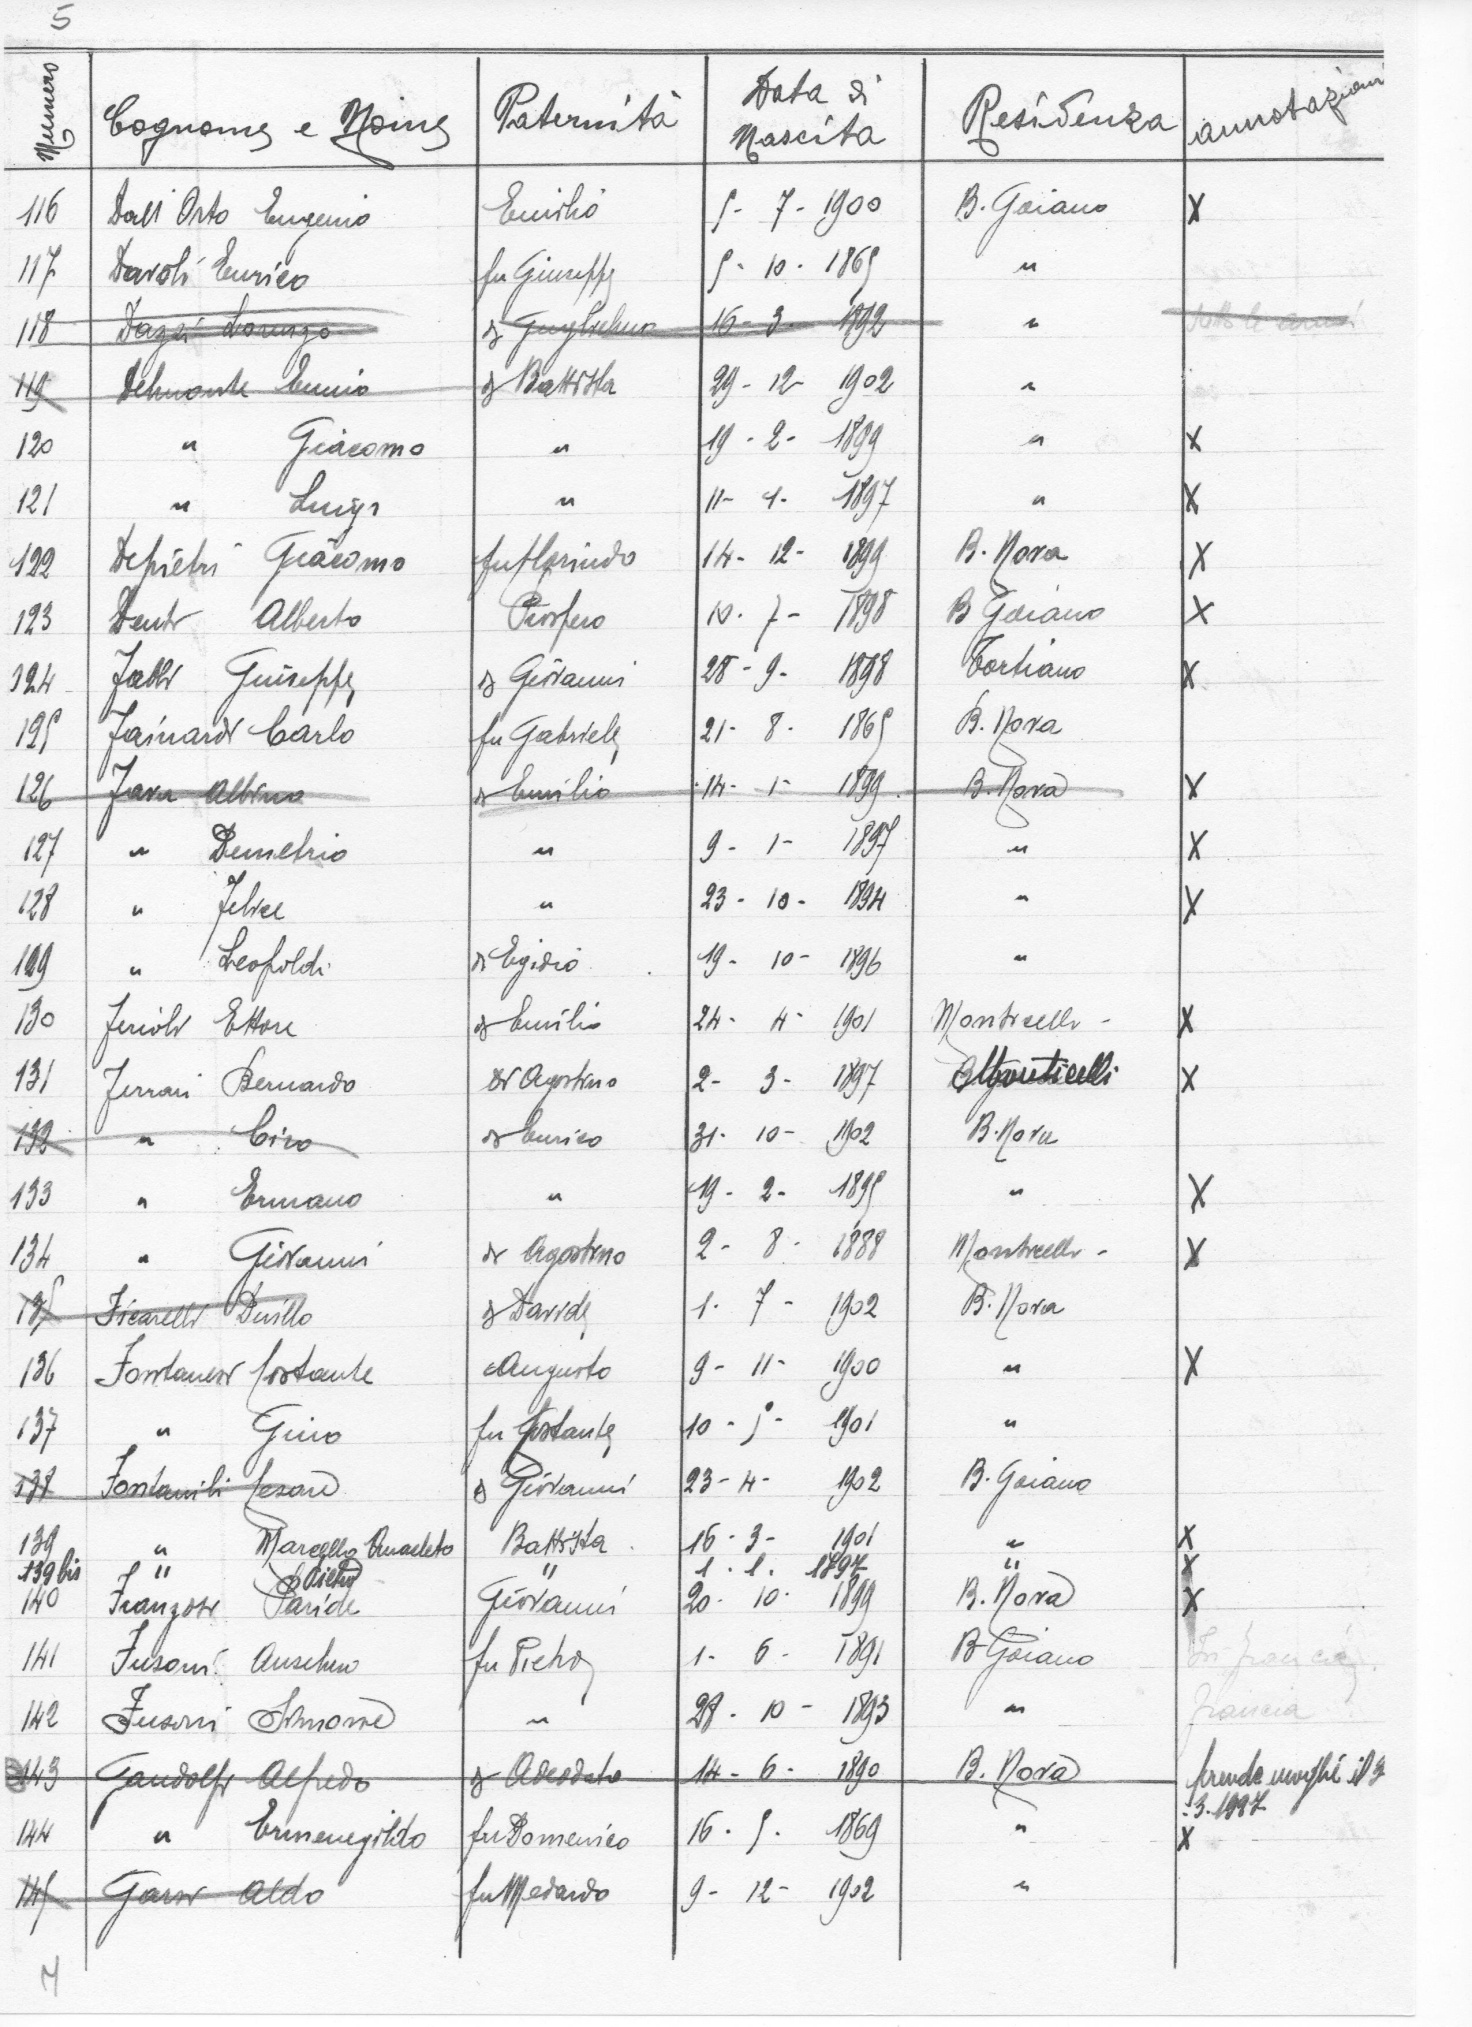 5
Numero Cognome e Nome Paternità Data di Nascita Residenza annotazioni
116 Dall'Orto Eugenio Emilio 5- 7- 1900 B. Goiano X
117 Davoli Enrico fu Giuseppe 5- 10- 1865 "
118 Dazzi Lorenzo di Guglielmo 16- 3- 1892 "
119 Delmonte Ennio di Battista 29- 12- 1902 "
120 " Giacomo " 19- 2- 1899 " X
121 " Luigi " 11- 1- 1897 " X
122 Depietri Giacomo fu Florindo 14- 12- 1899 B. Nova X
123 Denti Alberto Prospero 10- 7- 1898 B Goiano X
124 Falli Giuseppe di Giovanni 28- 9- 1898 Tortiano X
125 Fainardi Carlo fu Gabriele 21- 8- 1865 B. Nova
126 Fava Albino di Emilio 14- 1- 1899 B. Nova X
127 " Demetrio " 9- 1- 1897 " X
128 " Felice " 23- 10- 1894 " X
129 " Leopoldi di Egidio 19- 10- 1896 "
130 Ferioli Ettore di Emilio 24- 4- 1901 Monticelli - X
131 Ferrari Bernardo di Agostino 2- 3- 1897 Monticelli X
132 " Ciro di Enrico 31- 10- 1902 B. Nova
133 " Ermano " 19- 2- 1895 " X
134 " Giovanni di Agostino 2- 8- 1888 Monticelli - X
135 Ficarelli Duillo di Davide 1- 7- 1902 B. Nova
136 Fontanesi Costante Augusto 9- 11- 1900 " X
137 " Gino fu Costante 10- 5- 1901 "
138 Fontanili Cesare di Giovanni 23- 4- 1902 B. Goiano
139 " Marcello Anacleto Battista 16- 3- 1901 " X
139 bis " Pietro " 1. 1. 1897 " X
140 Franzosi Paride Giovanni 20- 10- 1899 B. Nova X
141 Fusoni Anselmo fu Pietro 1- 6- 1891 B Goiano In Francia
142 Fusoni Simone " 28- 10- 1893 " Francia
143 Gandolfi Alfredo di Adeodato 14- 6- 1890 B. Nova prende moglie il 3
.3.1927
144 " Ermenegildo fu Domenico 16- 5- 1869 " X
145 Garsi Aldo fu Medardo 9- 12- 1902 "
7